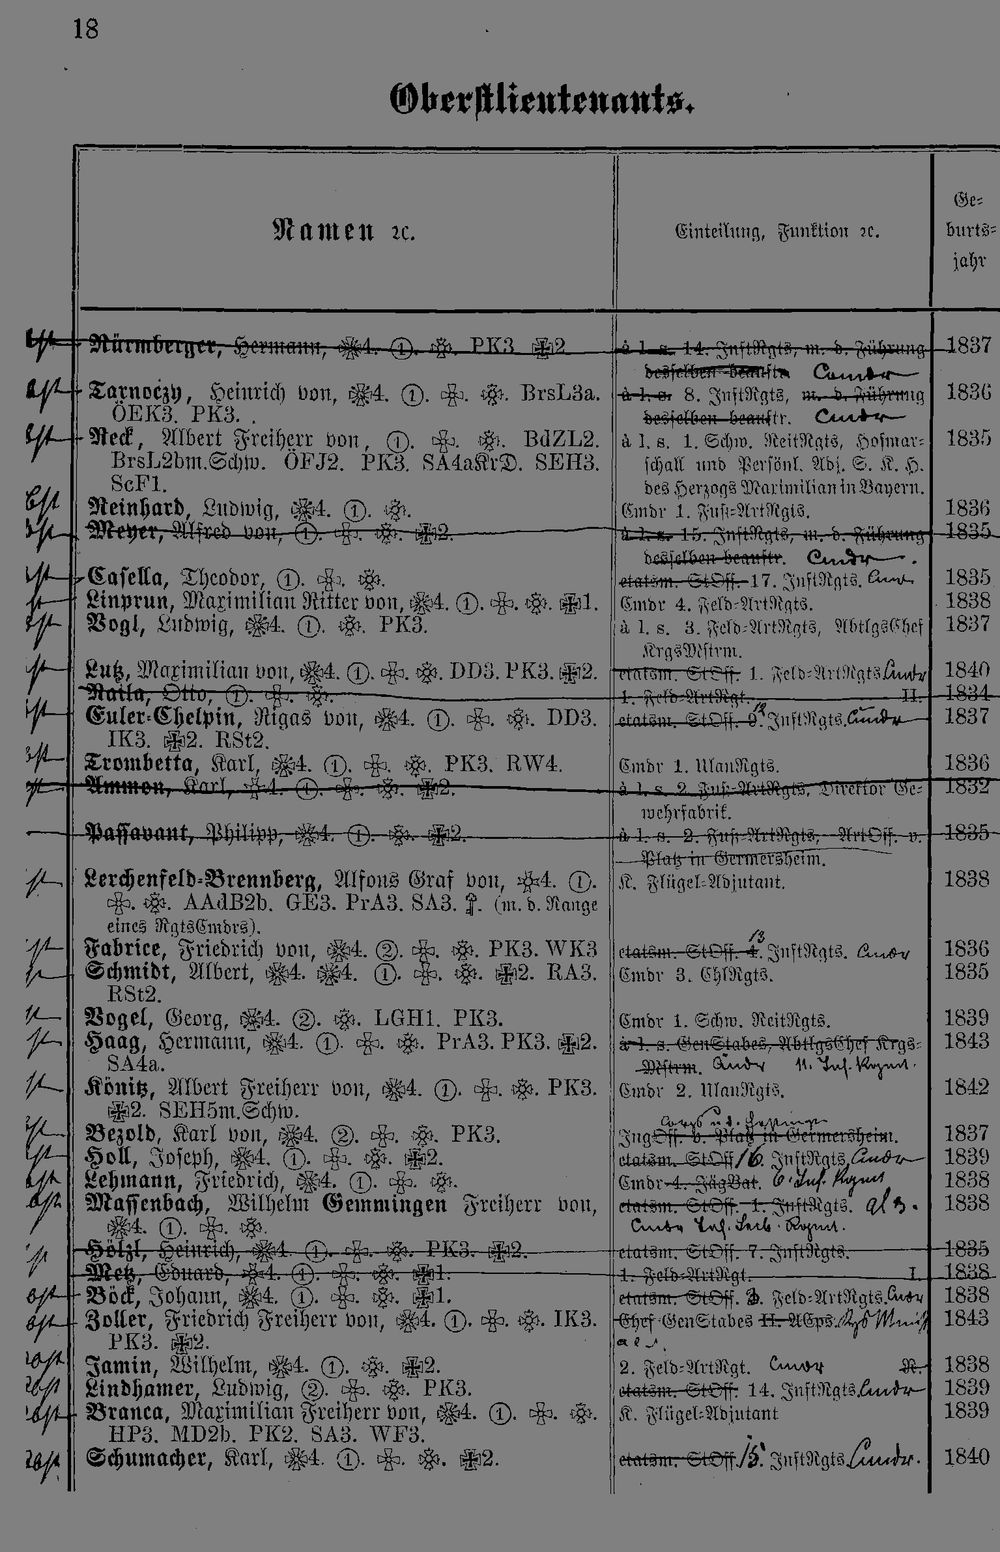 18
Oberstlieutenants.
Namen ꝛc.
Einteilung, Funktion ꝛc.
Ge-
burts-
jahr
Nürmberger, Hermann, 4. ①. PK3. 2. à l. s. 14. InftRgts, m. d. Führung 1837
desselben beauftr. Comdr
Tarnoczy, Heinrich von, 4. ①. BrsL3a. à l. s. 8. InftRgts, m. d. Führung 1836
ÖEK3. PK3. desselben beauftr. Cmdr
Reck, Albert Freiherr von, ①. BdZL2. à l. s. 1. Schw. ReitRgts, Hofmar- 1835
BrsL2bm.Schw. ÖFJ2. PK3. SA4aKrD. SEH3. schall und Persönl. Adj. S. K. H.
ScF1. des Herzogs Maximilian in Bayern.
Reinhard, Ludwig, 4. ①. Cmdr 1. Fuß-ArtRgts. 1836
Meyer, Alfred von, ①. 2. à l. s. 15. InftRgts, m. d. Führung 1835
desselben beauftr. Cmdr
Casella, Theodor, ①. etatsm. StOff. 17. InftRgts. Cmdr 1835
Linprun, Maximilian Ritter von, 4. ①. 1. Cmdr 4. Feld-ArtRgts. 1838
Vogl, Ludwig, 4. ①. PK3. à l. s. 3. Feld-ArtRgts, AbtlgsChef 1837
KrgsMstrm.
Lutz, Maximilian von, 4. ①. DD3. PK3. 2. etatsm. StOff. 1. Feld-ArtRgts Cmdr 1840
Naila, Otto, ①. 1. Feld-ArtRgt. II. 1834
Euler-Chelpin, Rigas von, 4. ①. DD3. etatsm. StOff. 9. 12 InftRgts. Cmdr 1837
IK3. 2. RSt2.
Trombetta, Karl, 4. ①. PK3. RW4. Cmdr 1. UlanRgts. 1836
Ammon, Karl, 4. ①. 2. à l. s. 2. Fuß-ArtRgts, Direktor Ge- 1832
wehrfabrik.
Passavant, Philipp, 4. ①. 2. à l. s. 2. Fuß-ArtRgts, ArtOff. v. 1835
Platz in Germersheim.
Lerchenfeld-Brennberg, Alfons Graf von, 4. ①. K. Flügel-Adjutant. 1838
AAdB2b. GE3. PrA3. SA3. (m. d. Range
eines RgtsCmdrs).
Fabrice, Friedrich von, 4. ②. PK3. WK3 etatsm. StOff. 4. 13 InftRgts. Cmdr 1836
Schmidt, Albert, 4. 4. ①. 2. RA3. Cmdr 3. ChlRgts. 1835
RSt2.
Vogel, Georg, 4. ②. LGH1. PK3. Cmdr 1. Schw. ReitRgts. 1839
Haag, Hermann, 4. ①. PrA3. PK3. 2. à l. s. GenStabes, AbtlgsChef Krgs- 1843
SA4a. Mstrm. Cmdr 11. Inf. Regmt.
Könitz, Albert Freiherr von, 4. ①. PK3. Cmdr 2. UlanRgts. 1842
2. SEH5m.Schw.
Bezold, Karl von, 4. ②. PK3. IngOff. v. Platz in Germersheim. 1837
Holl, Joseph, 4. ①. 2. etatsm. StOff. 16. InftRgts, Cmdr 1839
Lehmann, Friedrich, 4. ①. Cmdr 4. JägBat. 6. Inf. Regmt 1838
Massenbach, Wilhelm Gemmingen Freiherr von, etatsm. StOff. 1. InftRgts. 1838
4. ①. Cmdr Inf. Leib-Regmt.
Hölzl, Heinrich, 4. ①. PK3. 2. etatsm. StOff. 7. InftRgts. 1835
Metz, Eduard, 4. ①. 1. 1. Feld-ArtRgt. I. 1838
Böck, Johann, 4. ①. 1. etatsm. StOff. 3. Feld-ArtRgts. Cmdr 1838
Zoller, Friedrich Freiherr von, 4. ①. IK3. Chef GenStabes II. ACps. 1843
PK3. 2.
Jamin, Wilhelm, 4. ①. 2. 2. Feld-ArtRgt. Cmdr R. 1838
Lindhamer, Ludwig, ②. PK3. etatsm. StOff. 14. InftRgts. Cmdr 1839
Branca, Maximilian Freiherr von, 4. ①. K. Flügel-Adjutant 1839
HP3. MD2b. PK2. SA3. WF3.
Schumacher, Karl, 4. ①. 2. etatsm. StOff. 15. InftRgts Cmdr. 1840